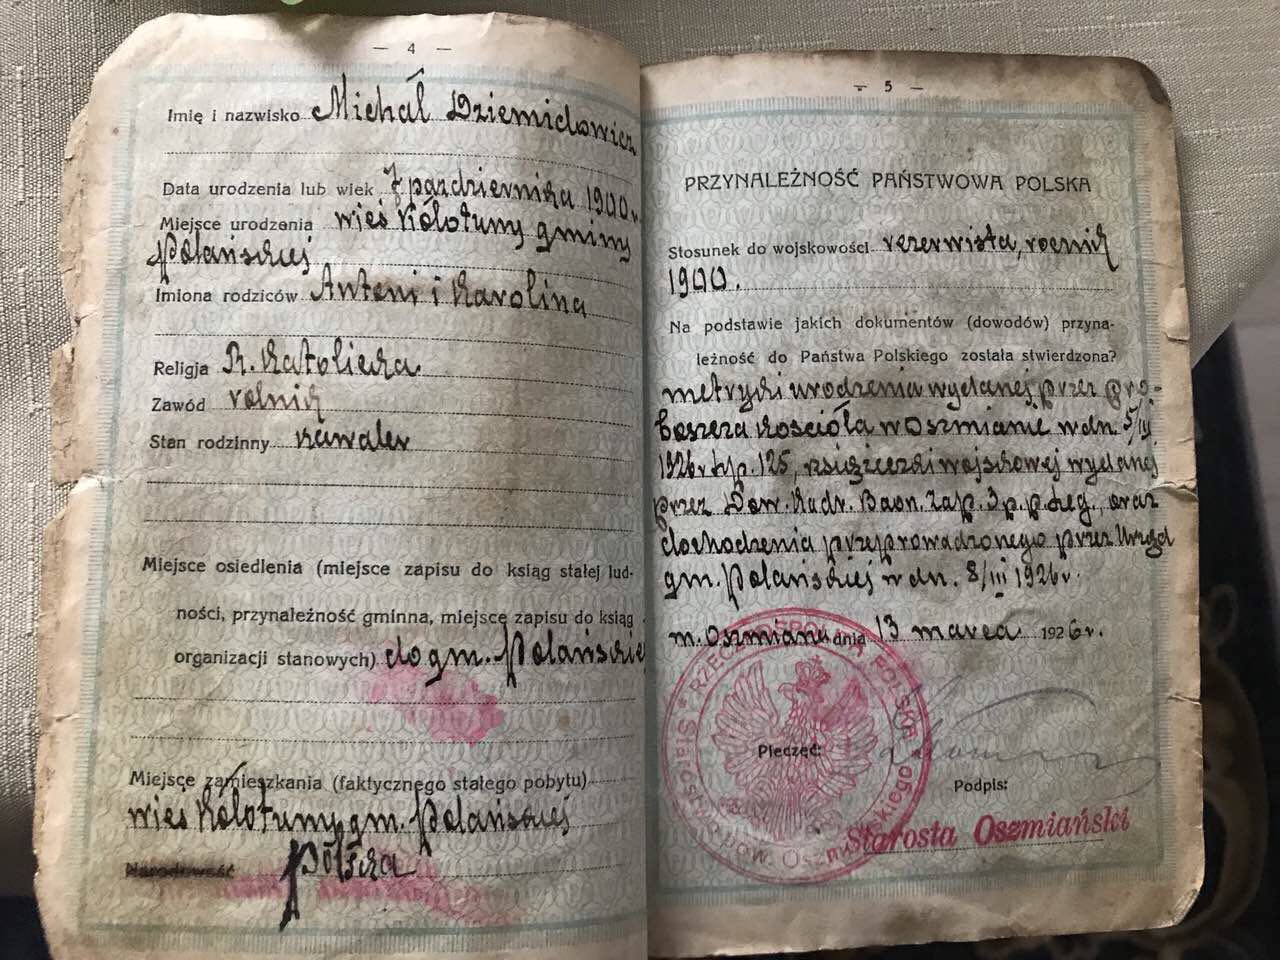 — 4 —
Imię i nazwisko Michał Dziemidowicz
Data urodzenia lub wiek 7 października 1900 r.
Miejsce urodzenia wieś Kółotumy gminy
Polańskiej
Imiona rodziców Antoni i Karolina
Religja R. Katolicka
Zawód rolnik
Stan rodzinny kawaler
Miejsce osiedlenia (miejsce zapisu do ksiąg stałej lud-
ności, przynależność gminna, miejsce zapisu do ksiąg
organizacji stanowych) do gm. Polańskiej
Miejsce zamieszkania (faktycznego stałego pobytu)
wieś Kółotumy gm. Polańskiej
Narodowość Polska
— 5 —
PRZYNALEŻNOŚĆ PAŃSTWOWA POLSKA
Stosunek do wojskowości rezerwista, rocznik
1900.
Na podstawie jakich dokumentów (dowodów) przyna-
leżność do Państwa Polskiego została stwierdzona?
metryki urodzenia wydanej przez pro-
boszcza kościoła w Oszmianie w dn. 5/III
1926 r. 125, książeczki wojskowej wydanej
przez Dow. Kadr. Baon. Zap. 3 p. p. Leg., oraz
dochodzenia przeprowadzonego przez Urząd
gm. Polańskiej w dn. 8/III 1926 r.
m. Oszmiana dnia 13 marca 1926 r.
RZECZPOSPOLITA POLSKA
Starostwo pow. Oszmiańskiego
Pieczęć:
Podpis:
Starosta Oszmiański